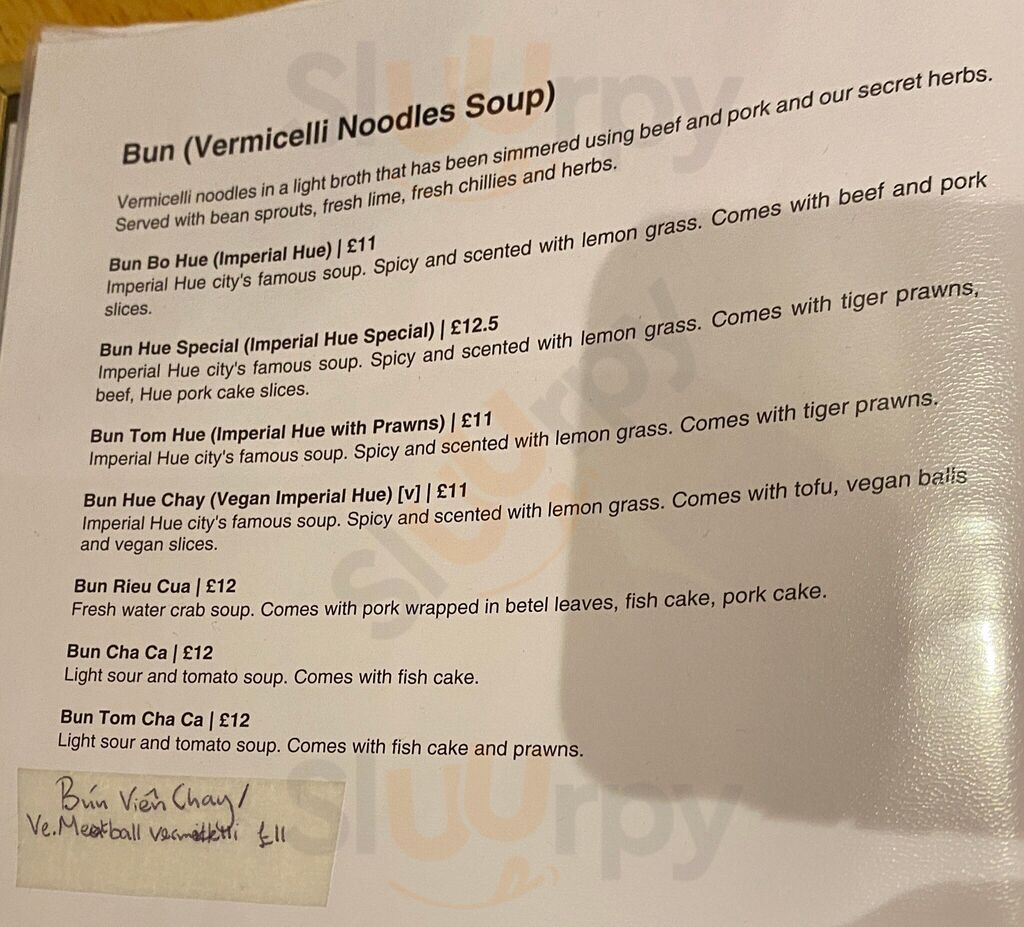 Bun (Vermicelli Noodles Soup)
Vermicelli noodles in a light broth that has been simmered using beef and pork and our secret herbs.
Served with bean sprouts, fresh lime, fresh chillies and herbs.
Bun Bo Hue (Imperial Hue) | £11
Imperial Hue city's famous soup. Spicy and scented with lemon grass. Comes with beef and pork
slices.
Bun Hue Special (Imperial Hue Special) | £12.5
Imperial Hue city's famous soup. Spicy and scented with lemon grass. Comes with tiger prawns,
beef, Hue pork cake slices.
Bun Tom Hue (Imperial Hue with Prawns) | £11
Imperial Hue city's famous soup. Spicy and scented with lemon grass. Comes with tiger prawns.
Bun Hue Chay (Vegan Imperial Hue) [v] | £11
Imperial Hue city's famous soup. Spicy and scented with lemon grass. Comes with tofu, vegan balls
and vegan slices.
Bun Rieu Cua | £12
Fresh water crab soup. Comes with pork wrapped in betel leaves, fish cake, pork cake.
Bun Cha Ca | £12
Light sour and tomato soup. Comes with fish cake.
Bun Tom Cha Ca | £12
Light sour and tomato soup. Comes with fish cake and prawns.
Bún Viên Chay/
Ve. Meatball £11
Sluurpy
Sluurpy
Sluurpy